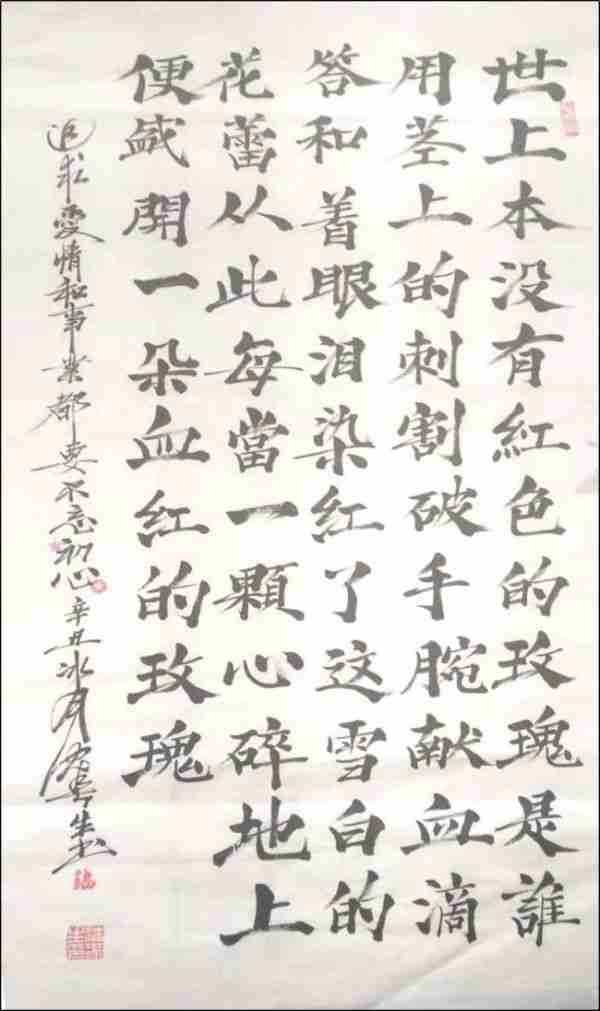 世上本没有紅色的玫瑰是誰
用茎上的刺割破手腕献血滴
答和着眼泪染紅了这雪白的
花蕾从此每當一顆心碎地上
便盛開一朵血紅的玫瑰
追求愛情和事業都要不忘初心 辛丑冰月